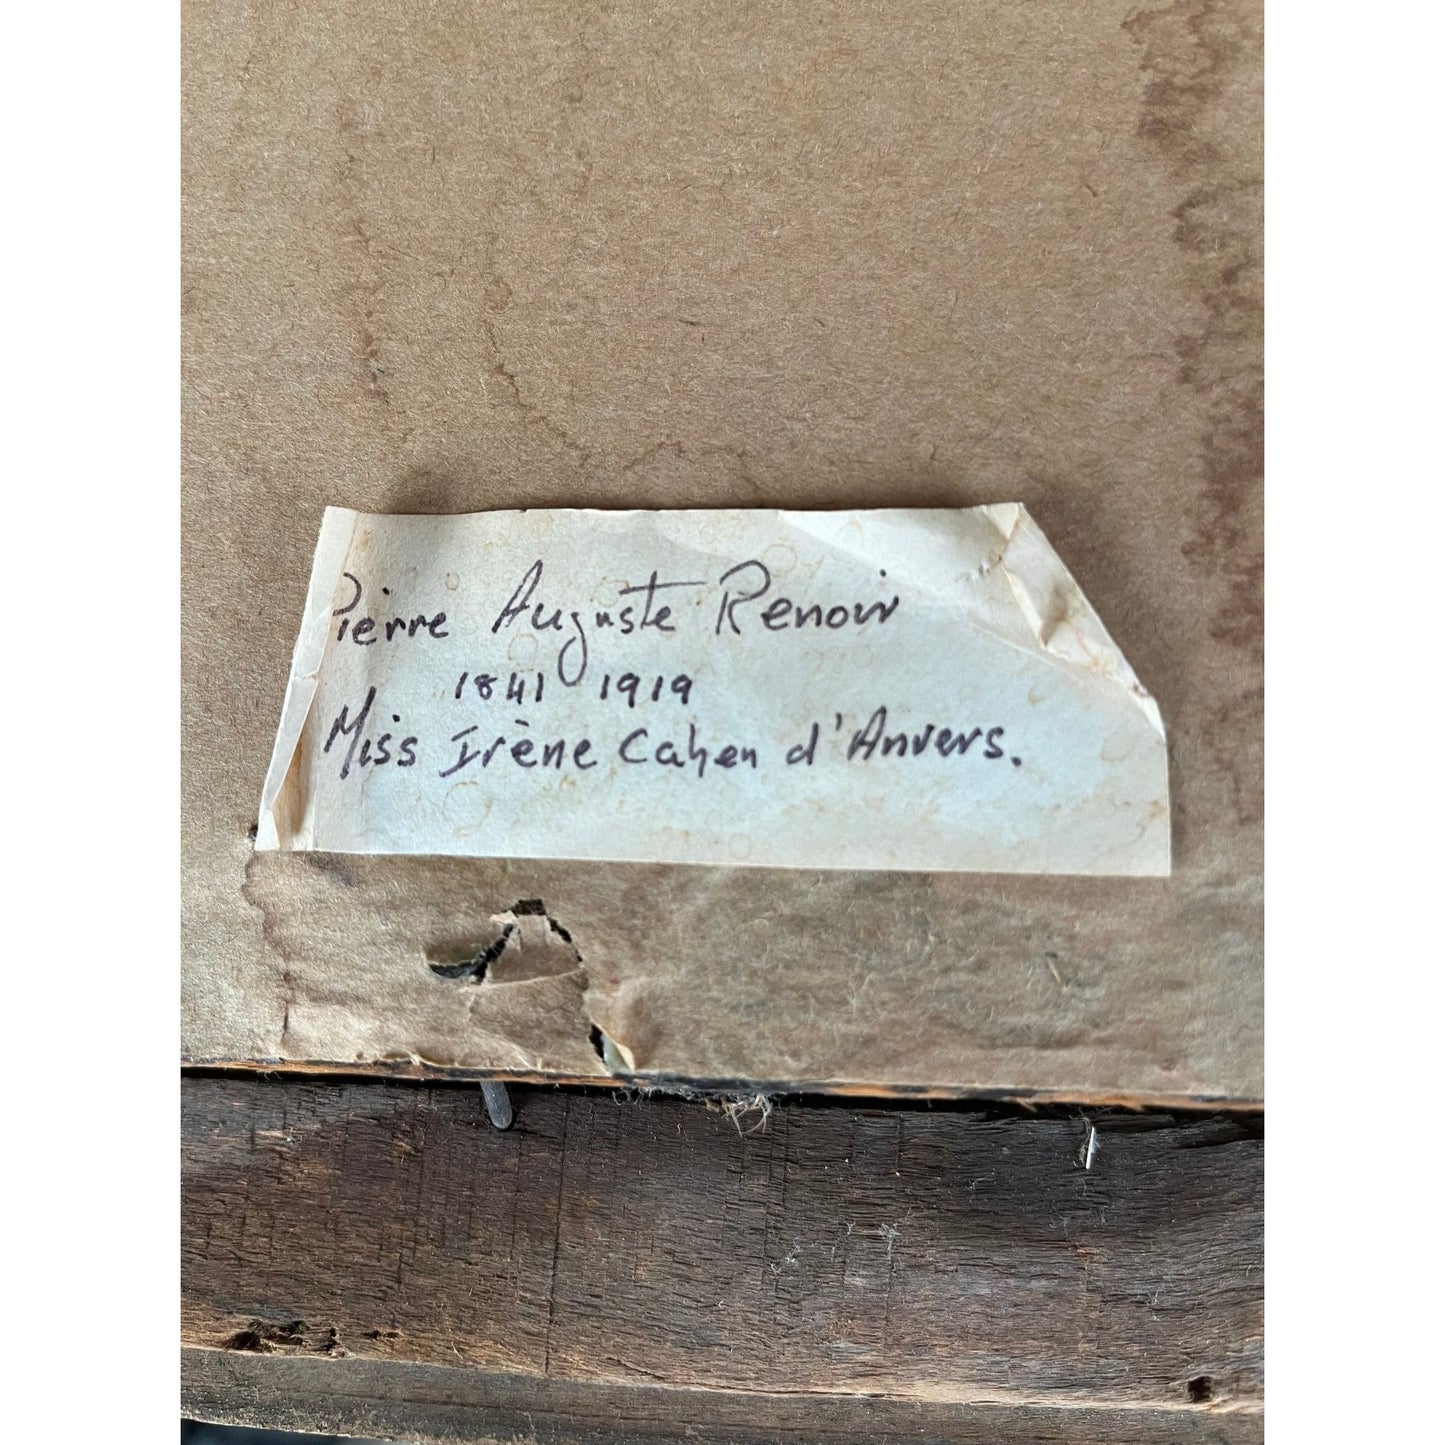 Pierre Auguste Renoir
1841 1919
Miss Irène Cahen d'Anvers.